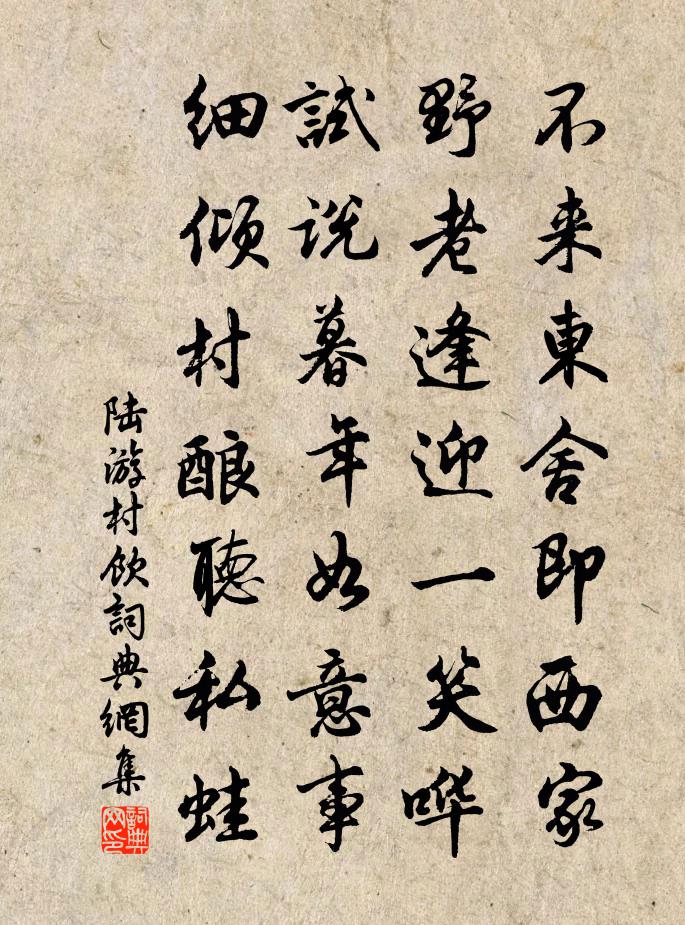 不来東舍即西家
野老逢迎一笑哗
試说暮年如意事
细倾村酿聴私蛙
陆游村饮詞典網集
詞典网印